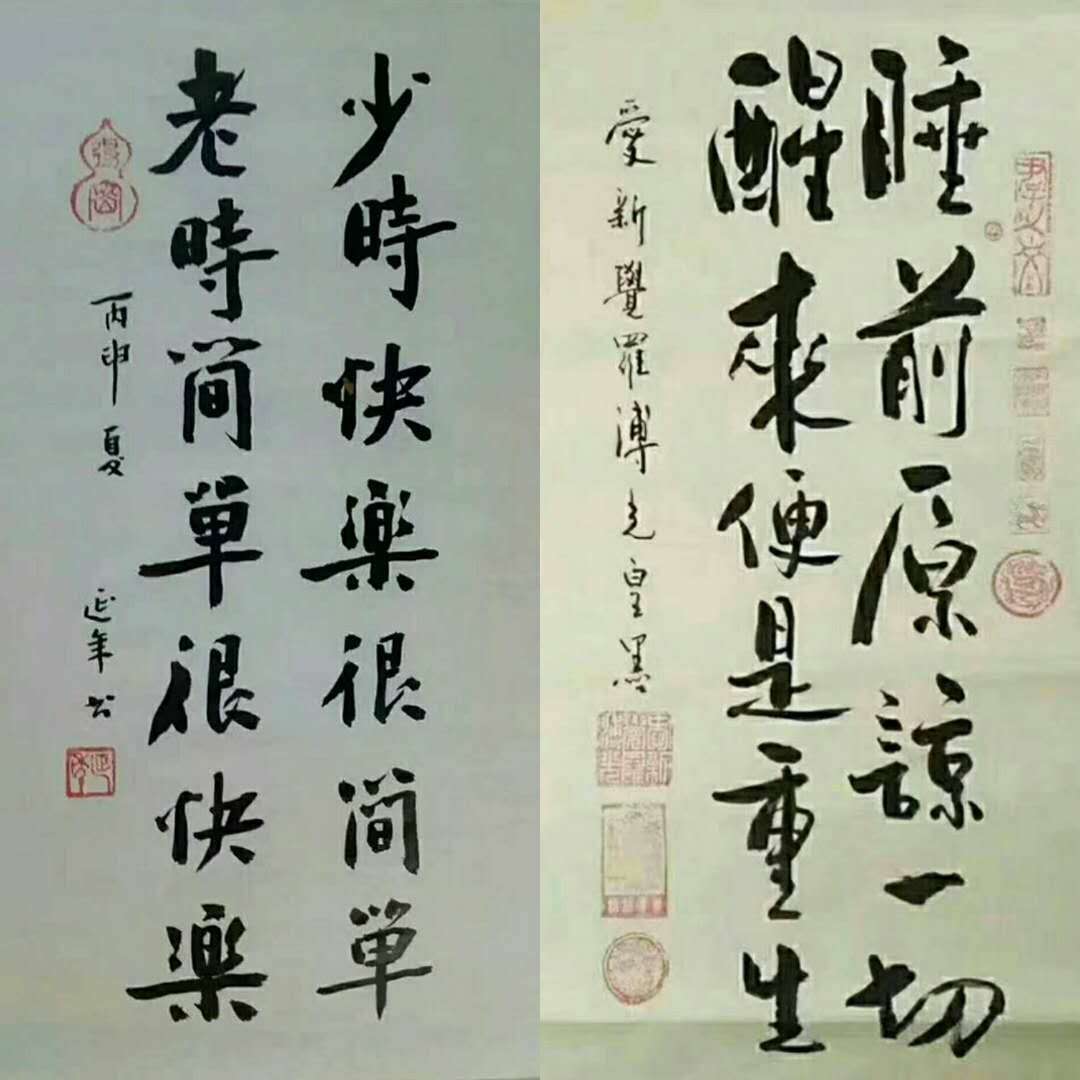 少時快樂很簡單
老時简單很快樂
丙申夏 延年书
睡前原諒一切
醒來便是重生
愛新覺羅溥光皇墨